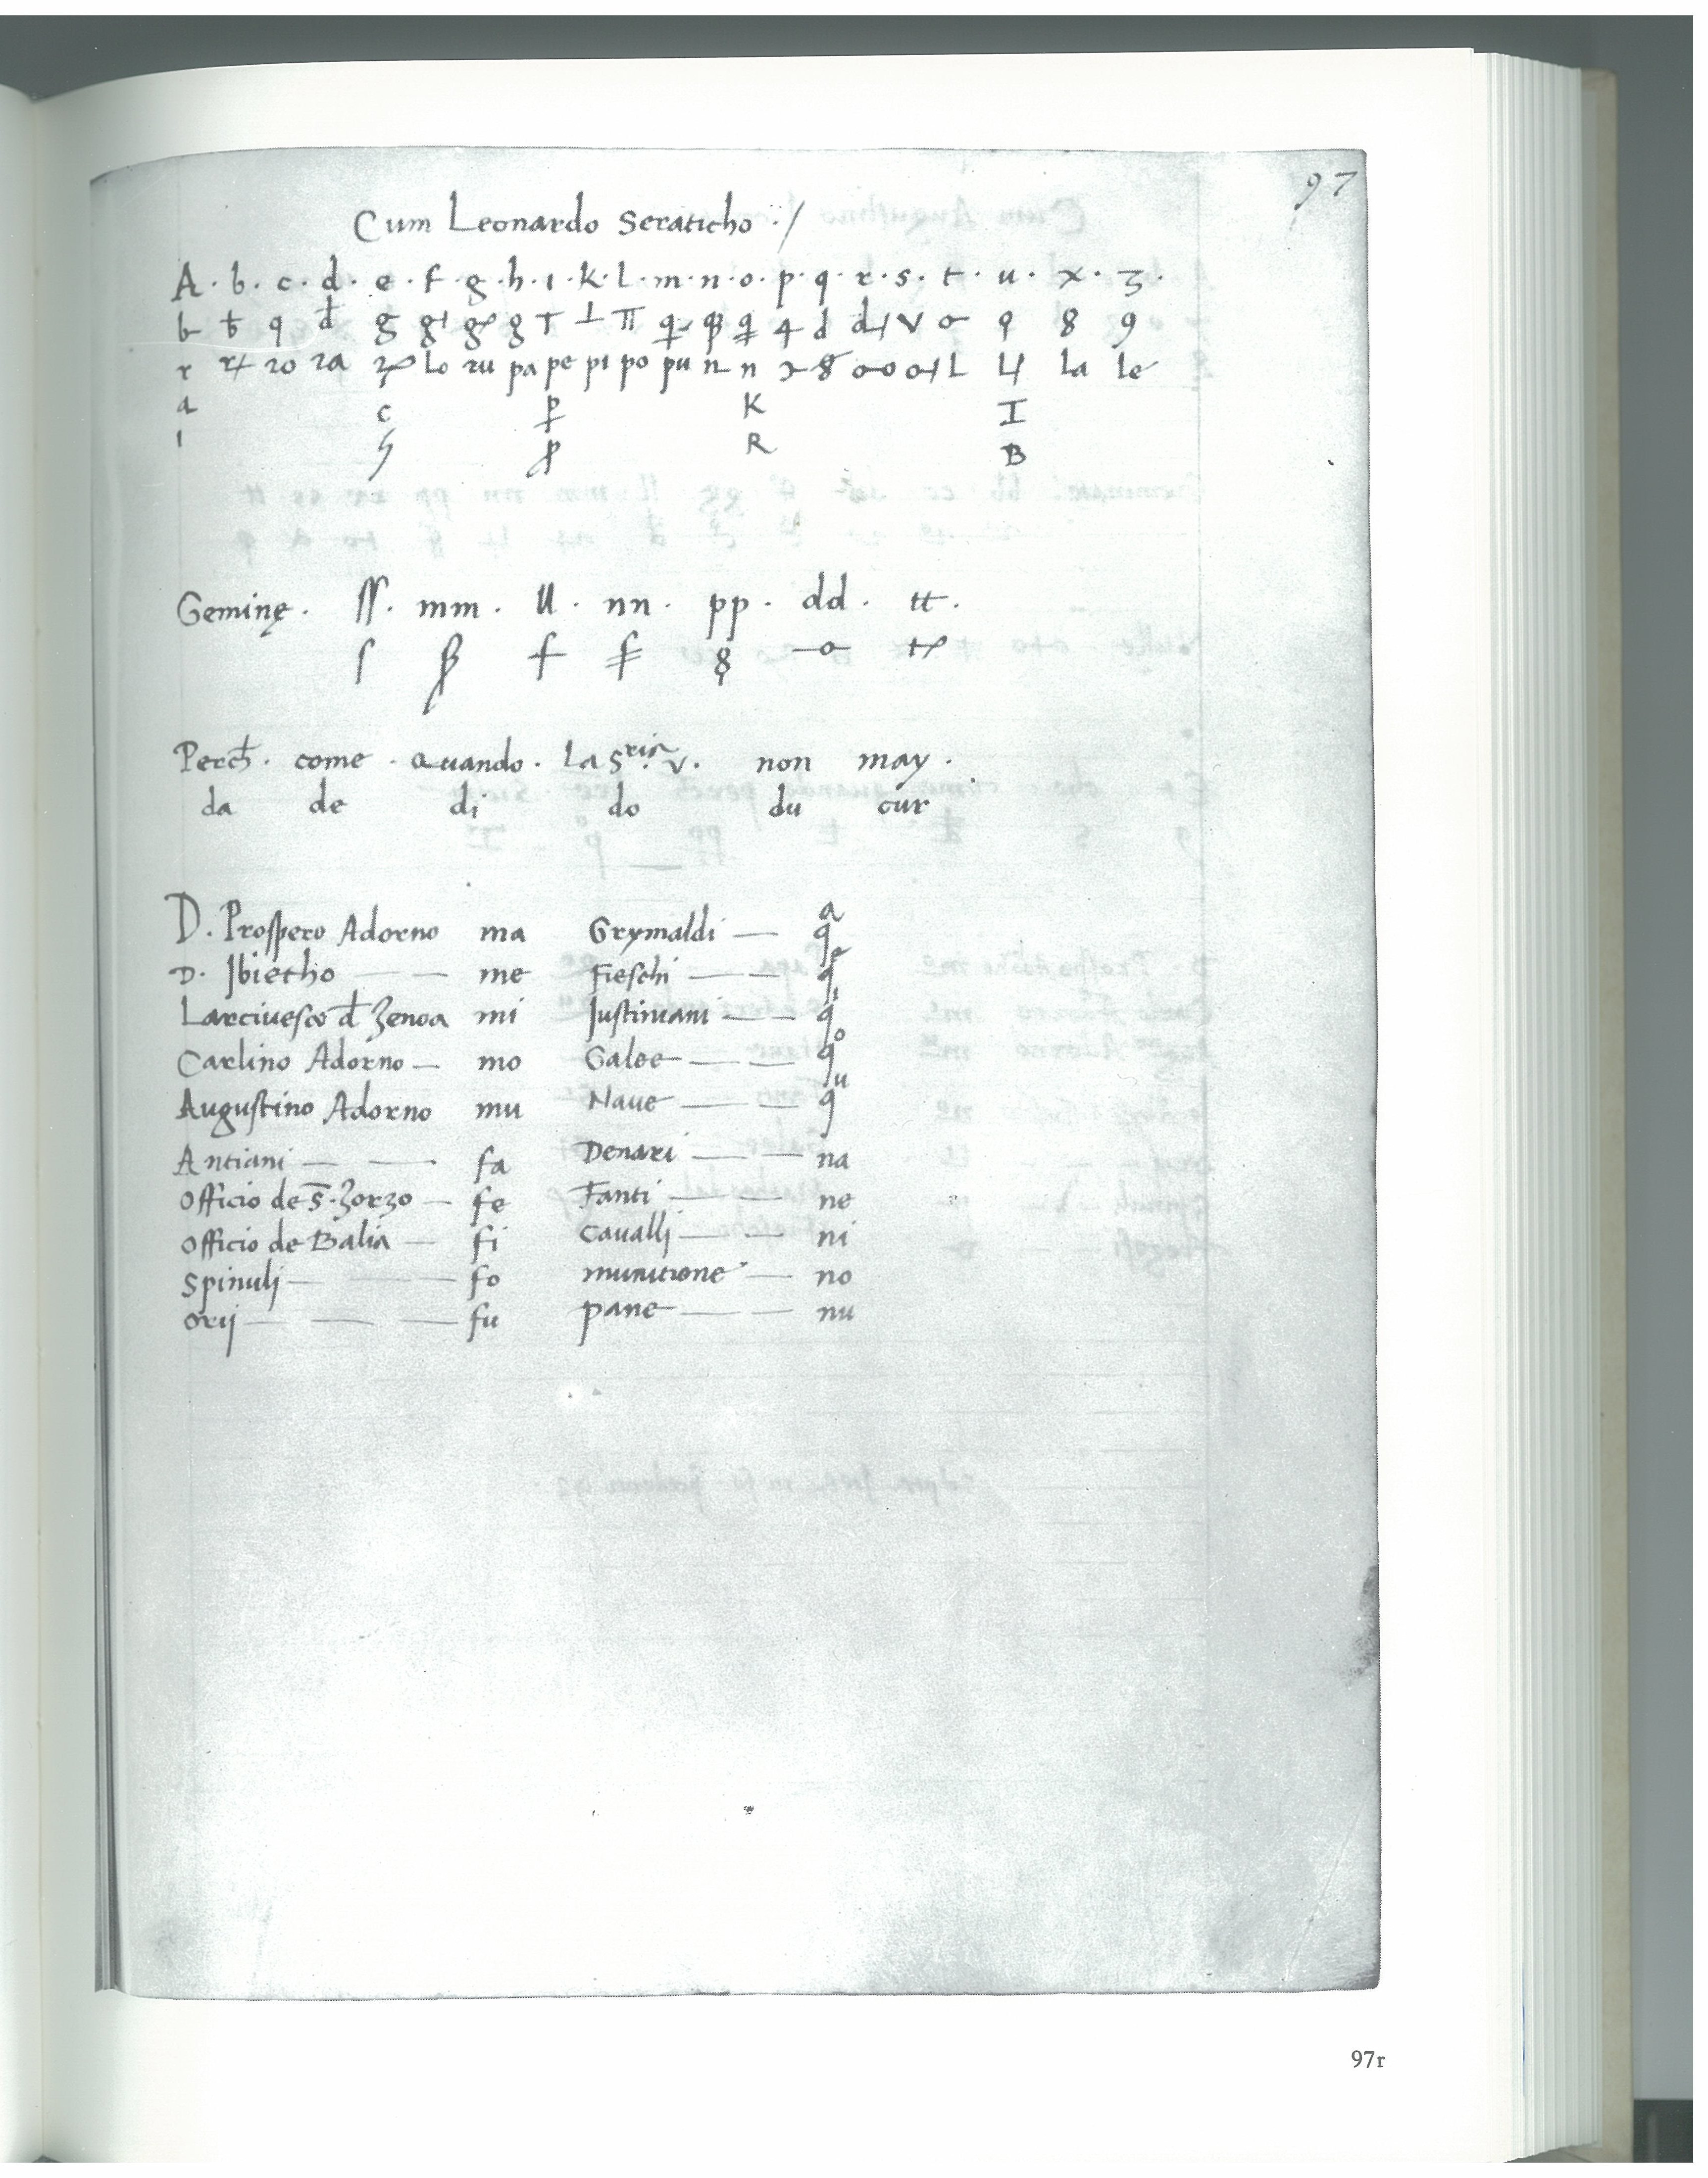 97
Cum Leonardo Seraticho ·:/
A · b · c · d · e · f · g · h · ı · k · l · m · n · o · p · q · r · s · t · u · x · ʒ ·
b q g g T ⊥ π d v σ 9 8 9
r zo za lo zu pa pe pi po pu n n 8 L la le
a c K I
ı R B
Geminę · ſſ · mm · ll · nn · pp · dd · tt ·
ſ
Perch̄ · come · Quando · La S.ria v · non may ·
da de di do du cur
D. Prospero Adorno ma Grymaldi — qa
D. Jbietho — — me Fieschi — — qe
Larciuesco đ Zenoa mi Justiniani — — qi
Carlino Adorno — mo Galee — — qo
Augustino Adorno mu Naue — — qu
Antiani — — fa Denari — — na
Officio de S̄ · Zorzo — fe Fanti — — ne
Officio de Balia — fi Cavallj — — ni
Spinulj — — fo munitione — no
Orij — — — fu pane — — nu
97r